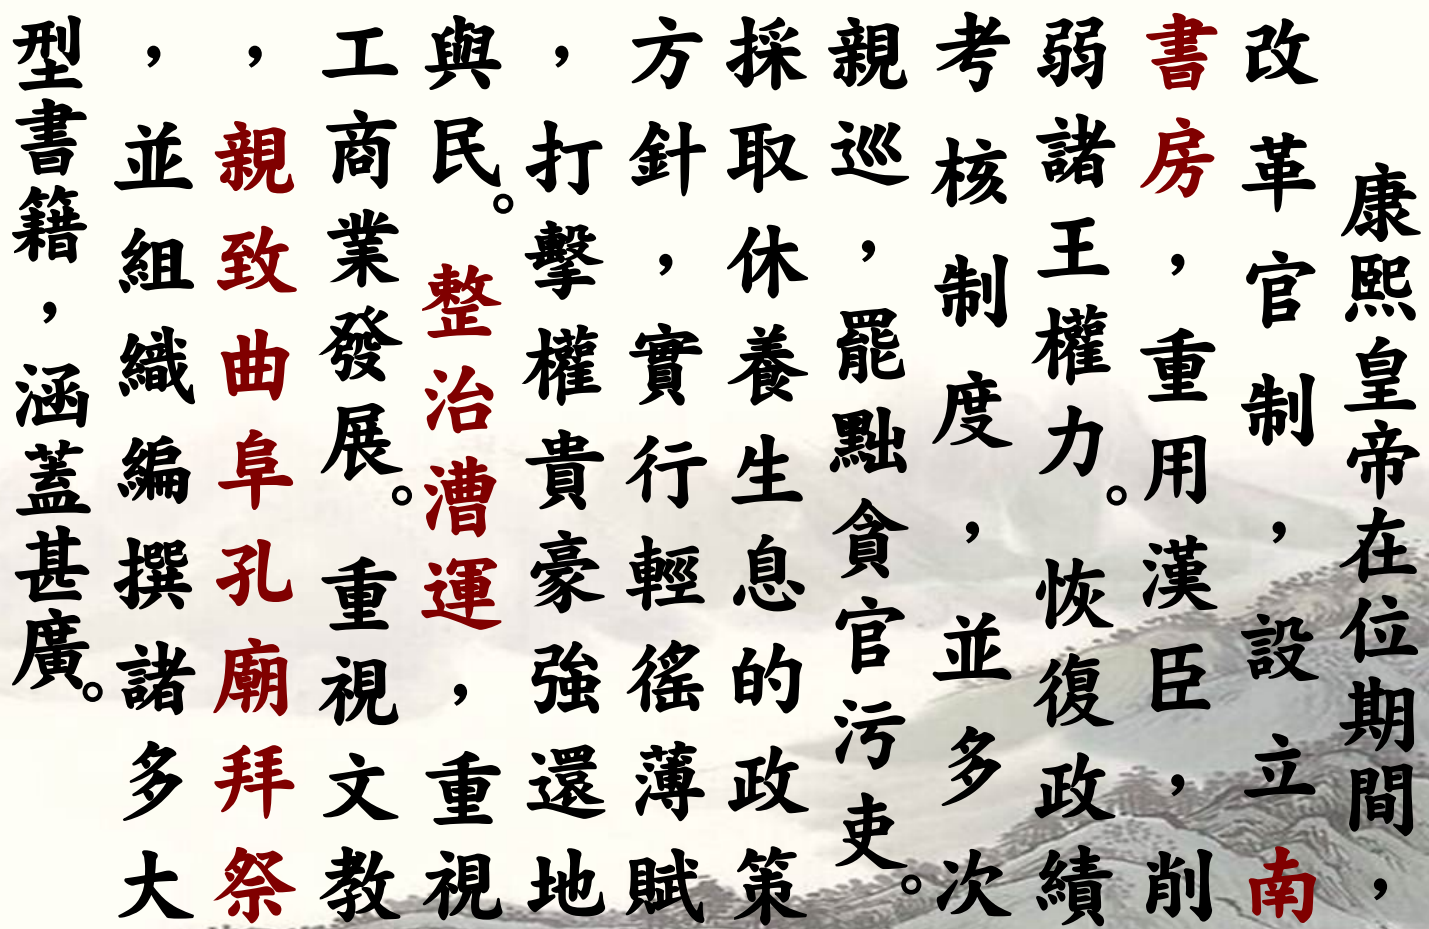 康熙皇帝在位期間，
改革官制，設立南
書房，重用漢臣，削
弱諸王權力。恢復政績
考核制度，並多次
親巡，罷黜貪官污吏。
採取休養生息的政策
方針，實行輕徭薄賦
，打擊權貴豪強還地
與民。整治漕運，重視
工商業發展。重視文教
，親致曲阜孔廟拜祭
，並組織編撰諸多大
型書籍，涵蓋甚廣。